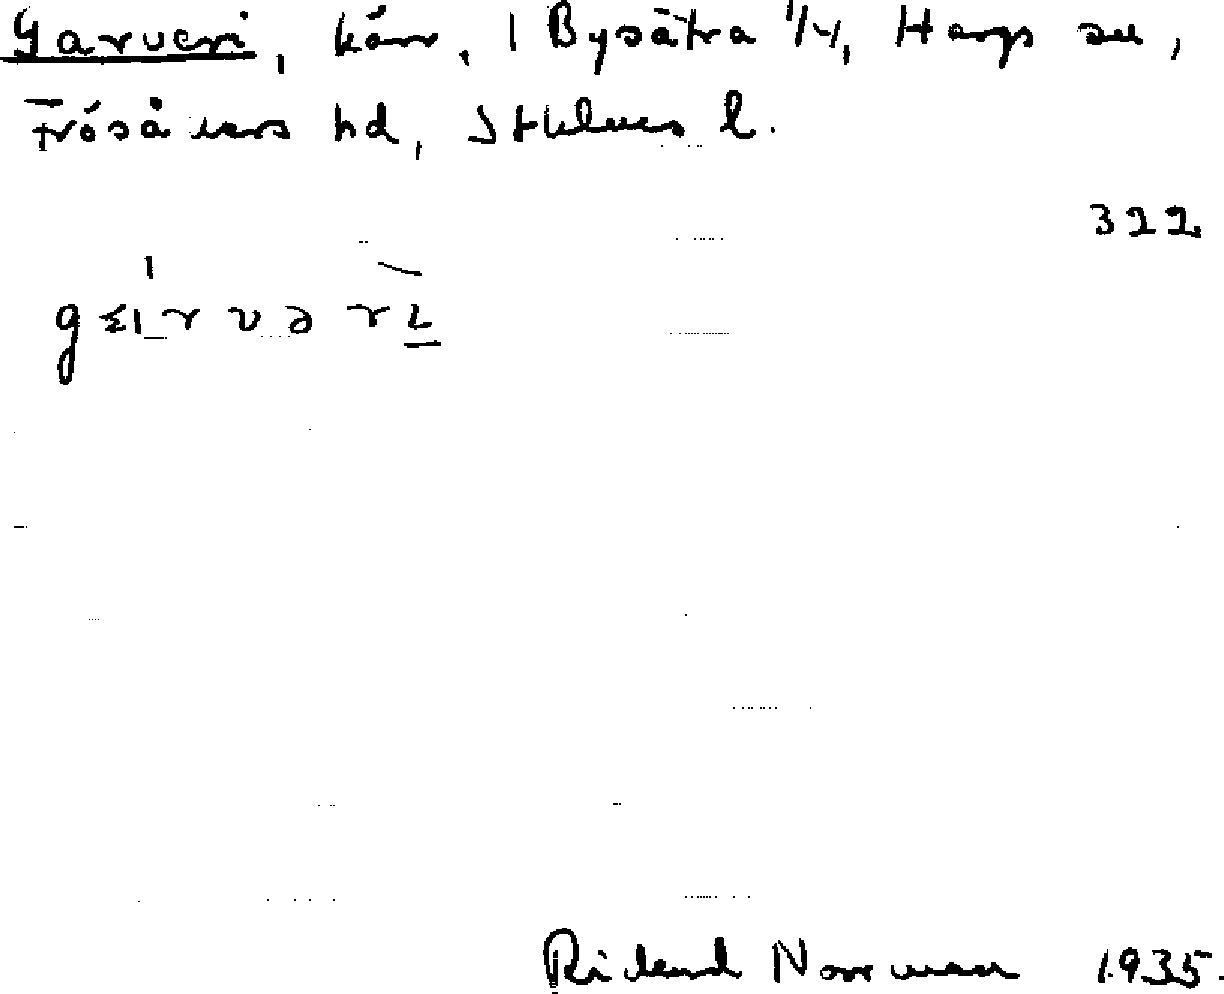 Garveri, kärr, 1 Bysätra 1/4, Hargs sn,
Frösåkers hd, Sthlms l.
322
Rickard Norrman 1935.